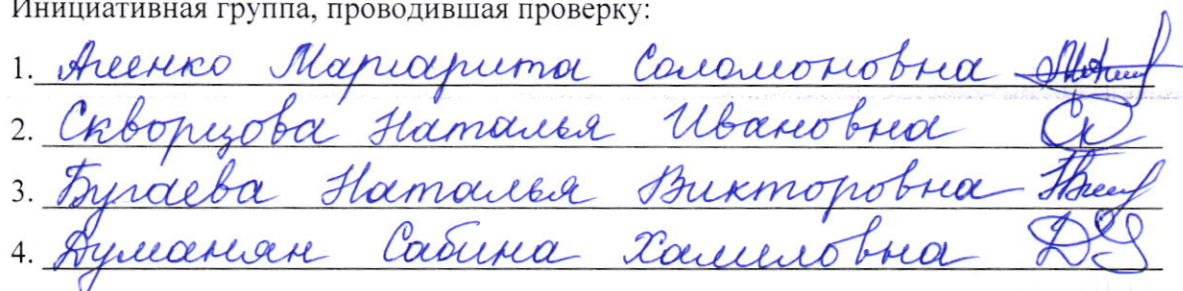 Инициативная группа, проводившая проверку:
1. Маргарита Соломоновна
2. Скворцова Наталья Ивановна
3. Бугаева Наталья Викторовна
4. Думанян Сабина Халиловна